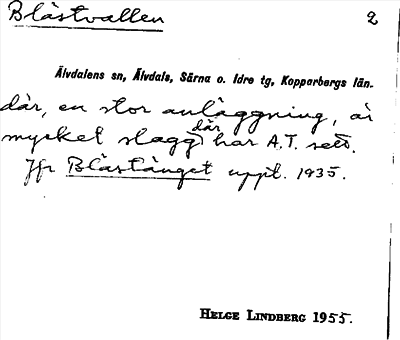 Blåstvallen 2
Älvdalens sn, Älvdals, Särna o. Idre tg, Kopparbergs län.
där, en stor anläggning, är
mycket slagg där har A.T. sett.
Jfr Blästtänget uppt. 1935.
HELGE LINDBERG 1955.